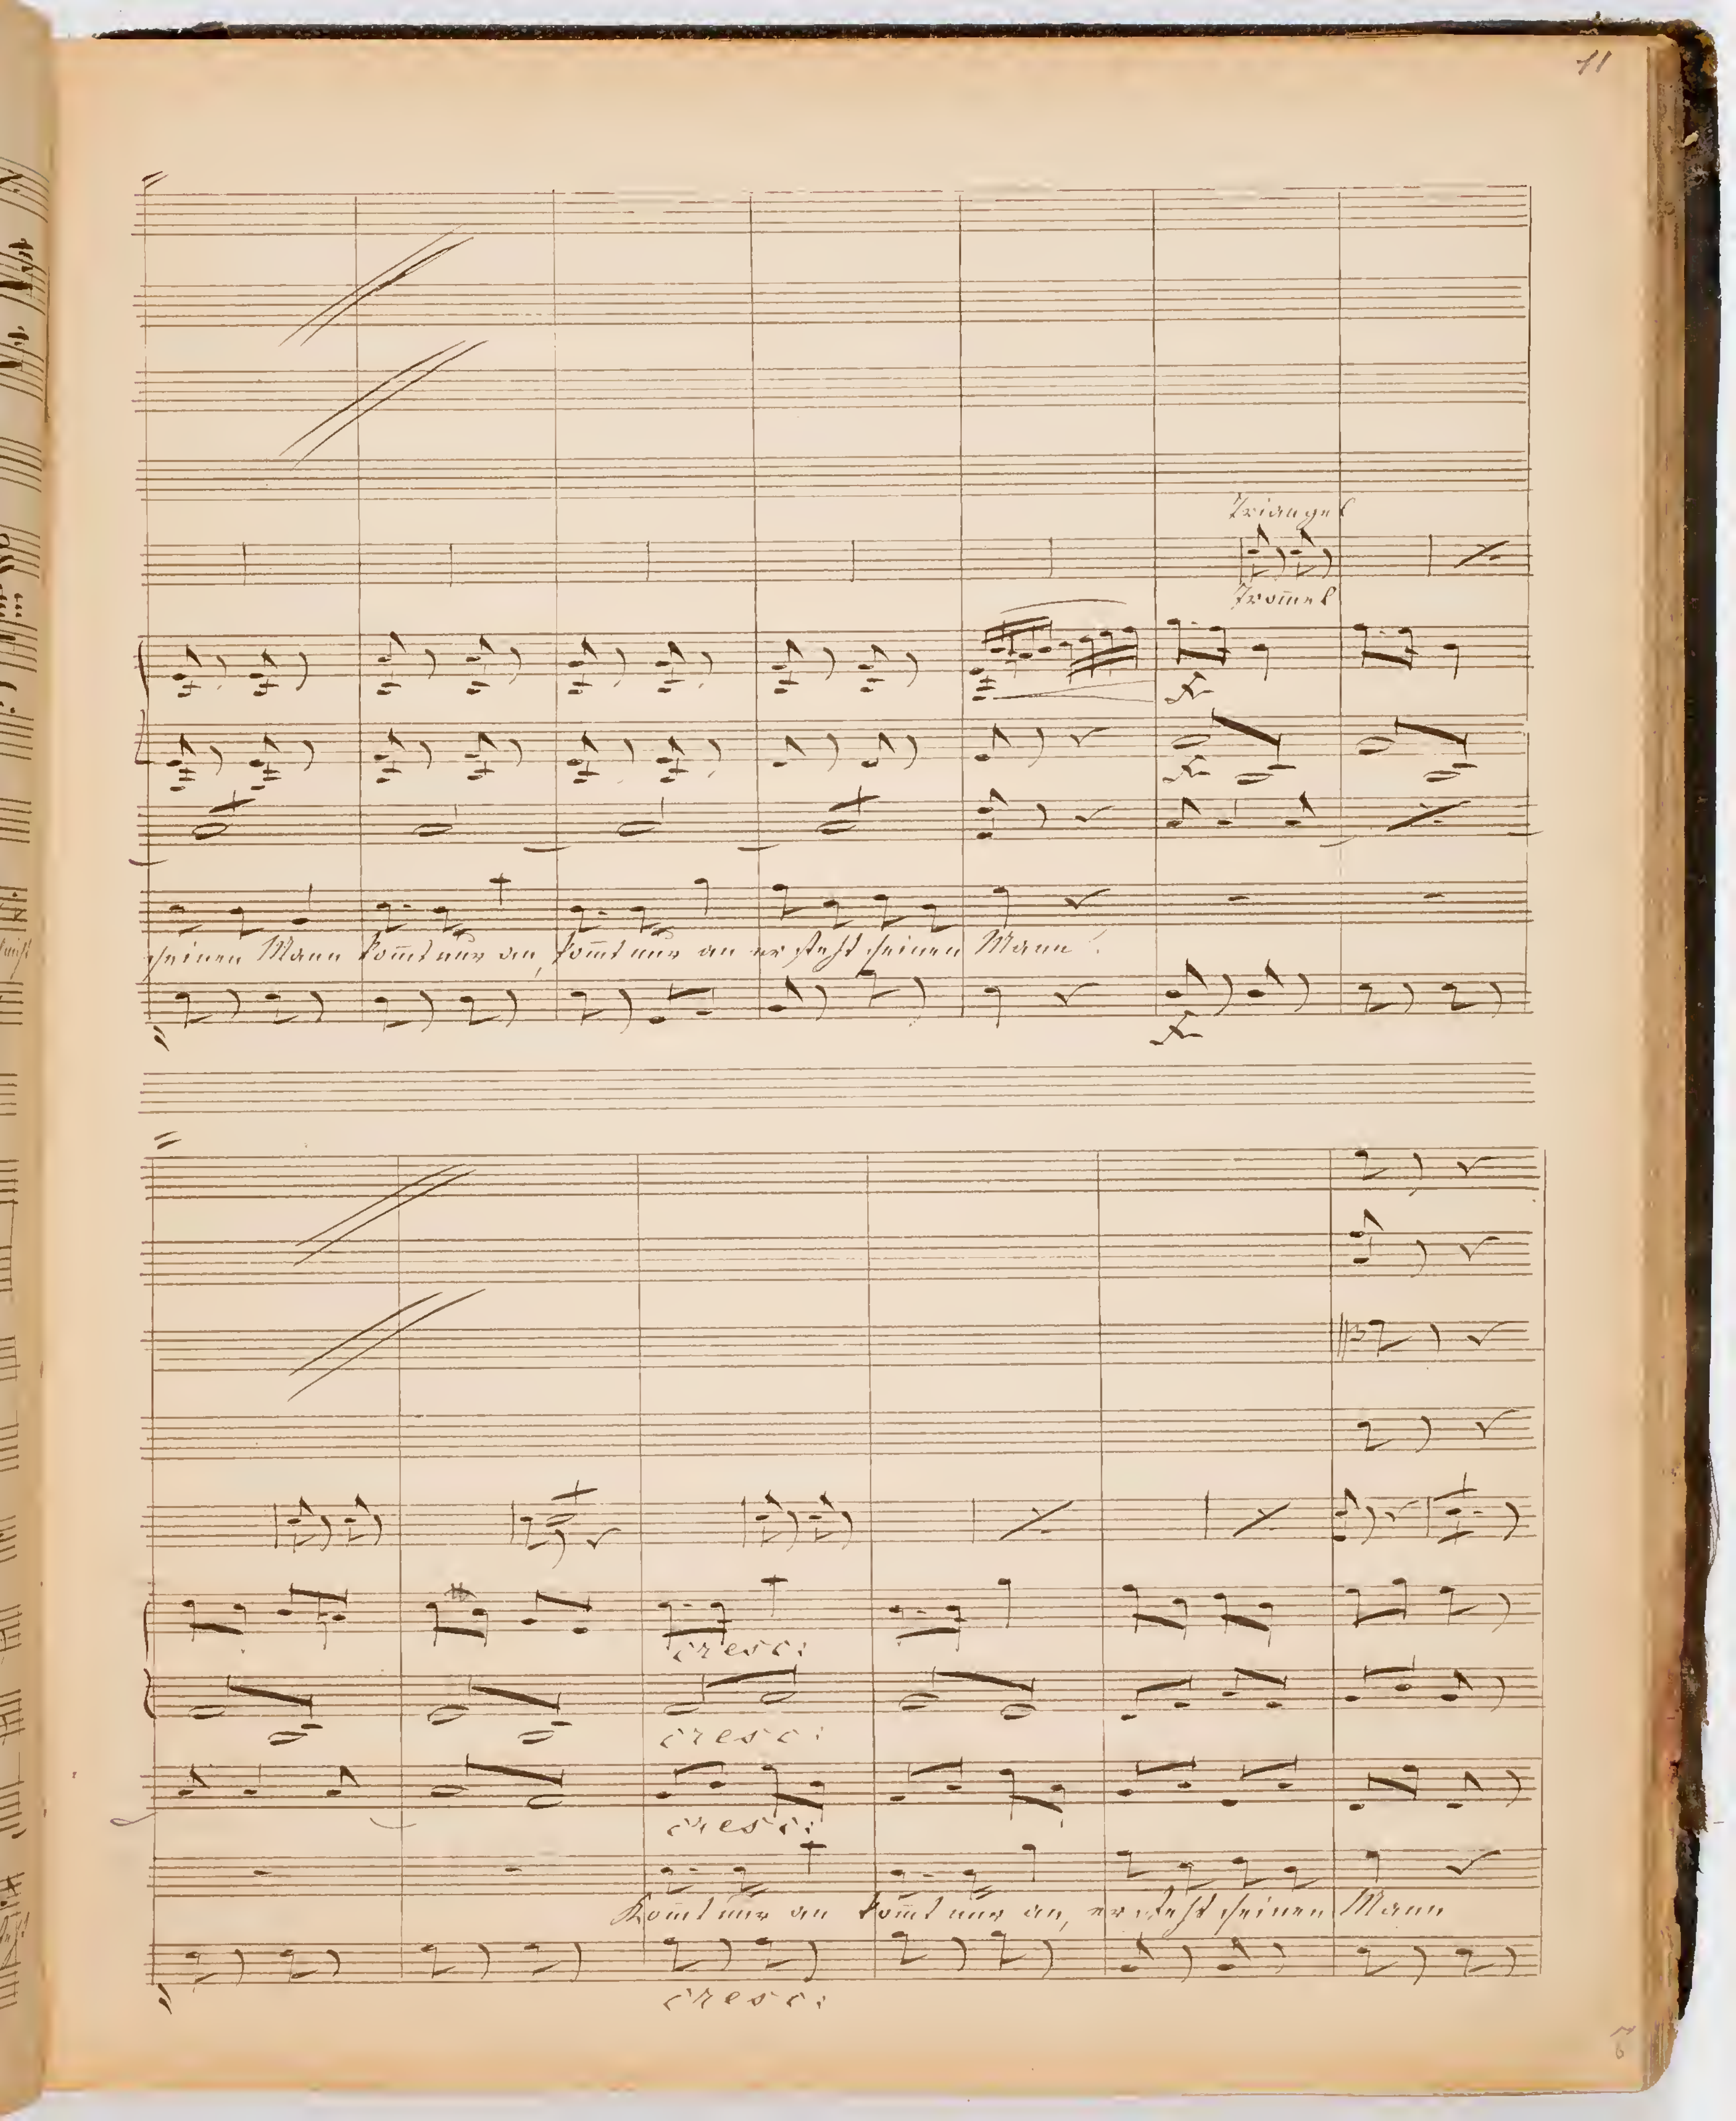 11
Triangel
Trom̅el
seinen Mann kom̅t nur an, kom̅t nur an er steht seinen Mann!
cresc:
cresc:
cresc:
Kom̅t nur an kom̅t nur an, er steht seinen Mann
cresc: